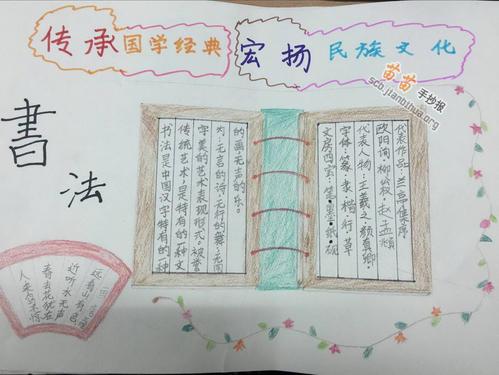 传承国学经典
宏扬民族文化
苗苗手抄报
scb.jianbihua.org
書法
书法是中国汉字特有的一种
传统艺术是特有的一种文
字美的艺术表现形式。被誉
为:无言的诗,无行的舞;无图
的画无声的乐。
文房四宝:笔、墨、纸、砚
字体:篆、隶、楷、行、草
代表人物:王羲之、颜真卿、
欧阳询、柳公权、赵孟頫
代表作品:兰亭集序
远看山有色
近听水无声
春去花犹在
人来鸟不惊